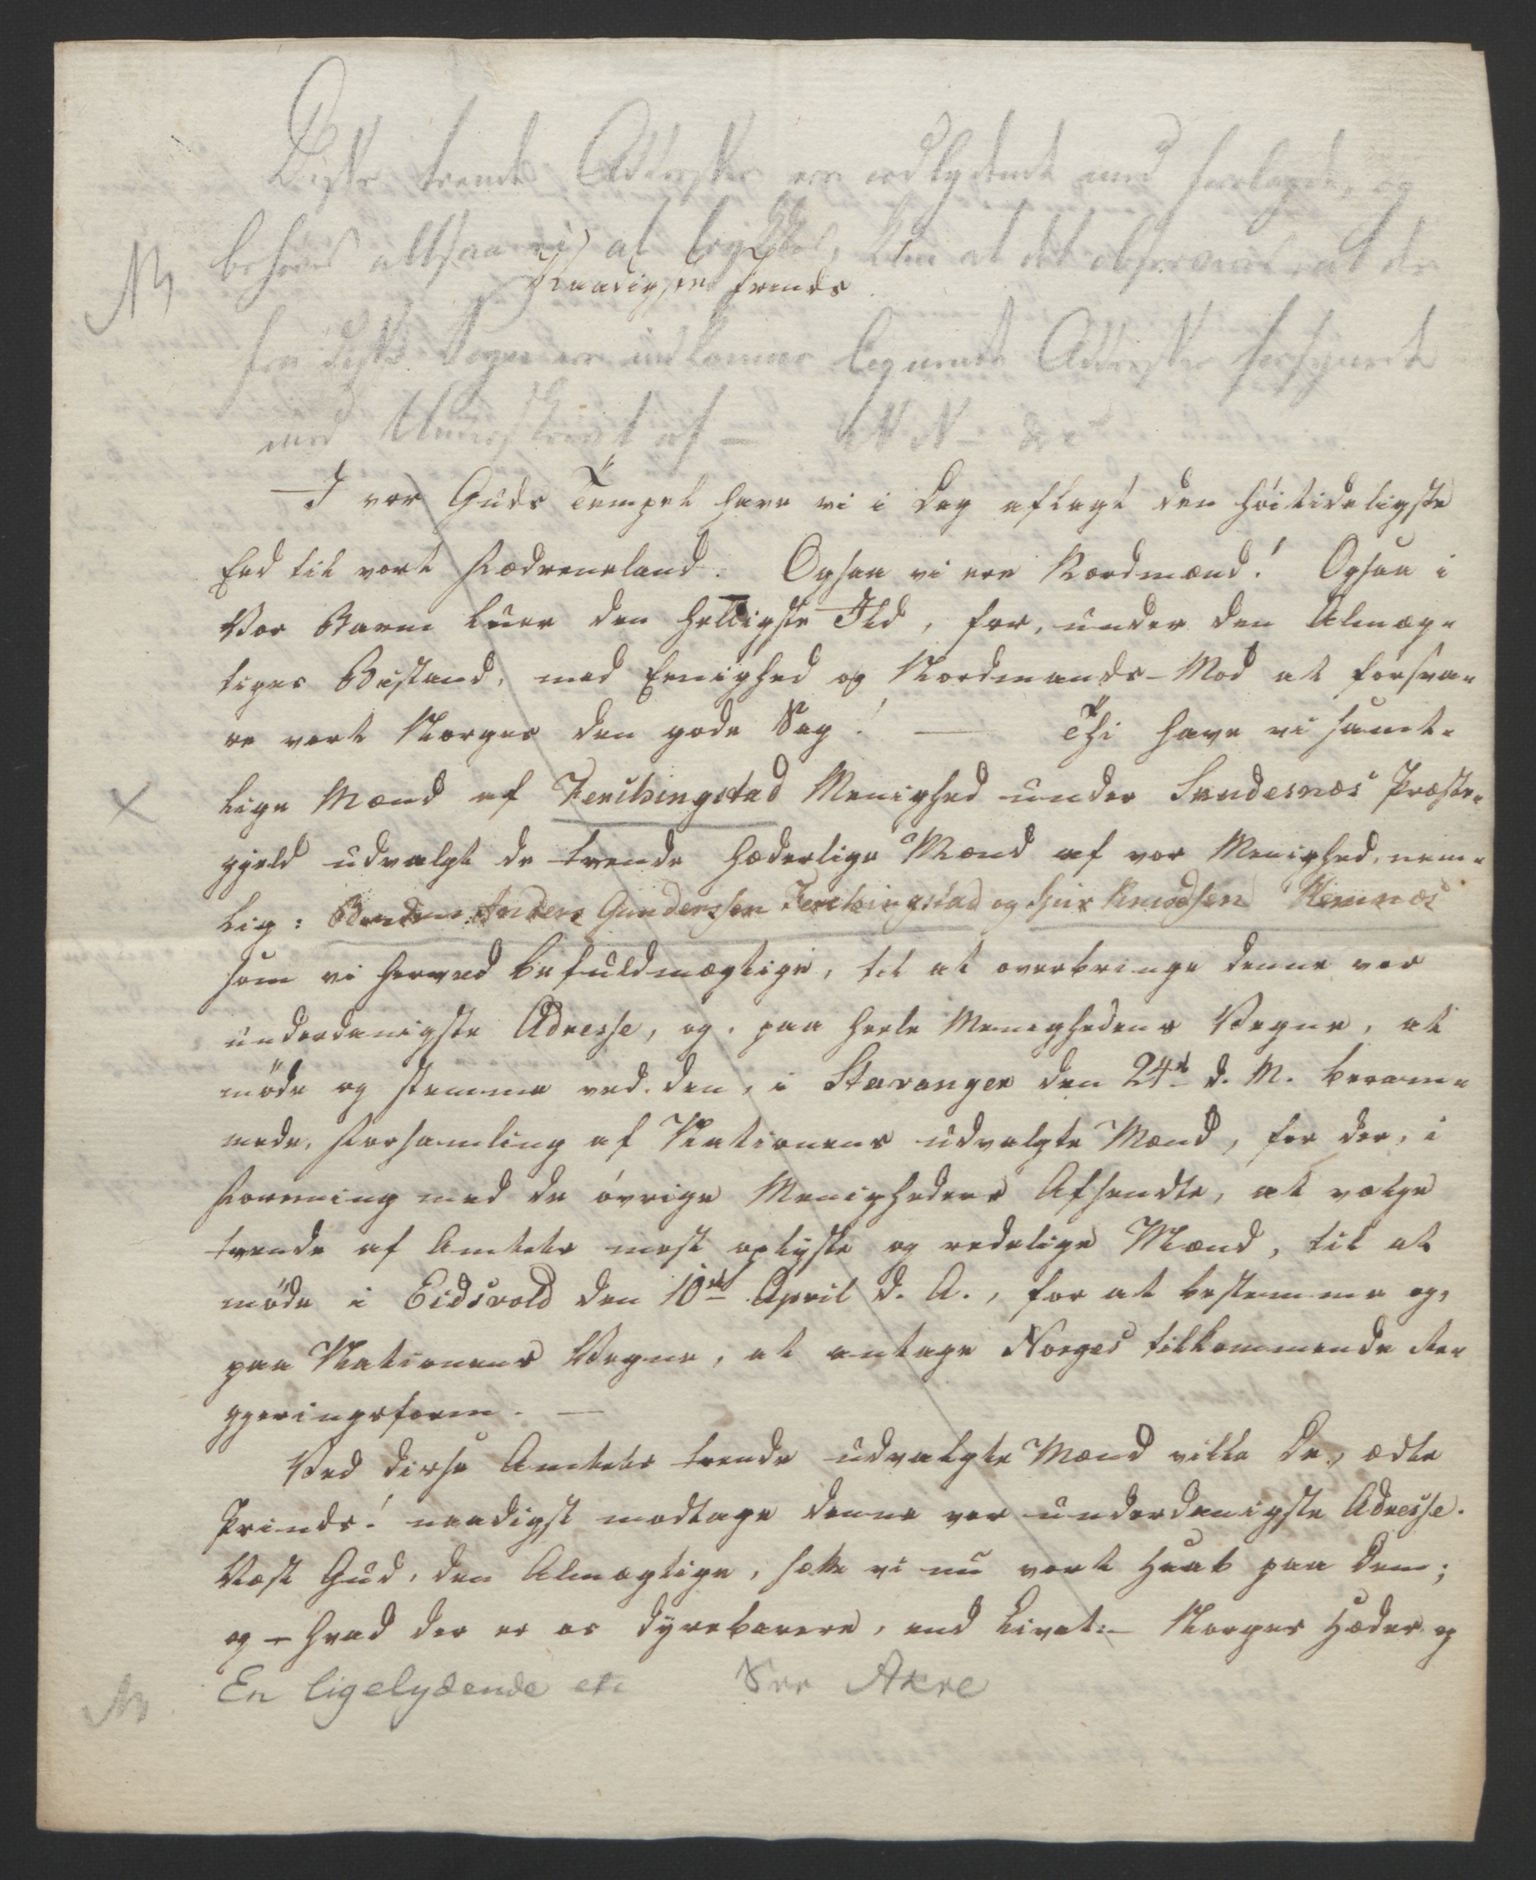 Disse trende Adresser ere ordlydende med forlagde, og
behøves altsaa ei at trykkes, kun at det observeres at der
Naadigste Prinds
fra disse Sogne ere indkomne lignende Adresser forsynede
med Underskrivt af — N N — &c
I vor Guds Tempel have vi i Dag aflagt den høitideligste
Eed til vort Fædreneland. Ogsaa vi ere Nordmænd! Ogsaa i
Vor Barm luer den helligste Ild, for, under den Almæg-
tiges Bistand, med Eenighed og Nordmands-Mod at forsva-
re vort Norges den gode Sag! — Thi have vi samt-
lige Mænd af Ferchingstad Menighed under Svudesnæs Præste-
gjeld udvalgt de trende hæderlige Mænd af vor Menighed, nem-
lig: Anders Gunderssen Ferchingstad og Siur Knudsen
som vi herved befuldmægtige, til at overbringe denne vor
underdanigste Adresse, og, paa heele Menighedens Vegne, at
møde og stemme ved den, i Stavanger den 24de d. M. beram-
mede, Forsamling af Nationens udvalgte Mænd, for der, i
Forening med de øvrige Menigheders Afsendte, at vælge
trende af Amtets mest oplyste og redelige Mænd, til at
møde i Eidsvold den 10de April d. A., for at bestemme og,
paa Nationens Vegne, at antage Norges tilkommende Re-
gjeringsform. —
Ved disse Amtets trende udvalgte Mænd ville De, ædle
Prinds! naadigst modtage denne vor underdanigste Adresse.
Næst Gud, den Almægtige, sætte vi nu vort Haab paa Dem;
og — hvad der er os dyrebarere, end Livet — Norges Hæder og
En ligelydende etc See Akre